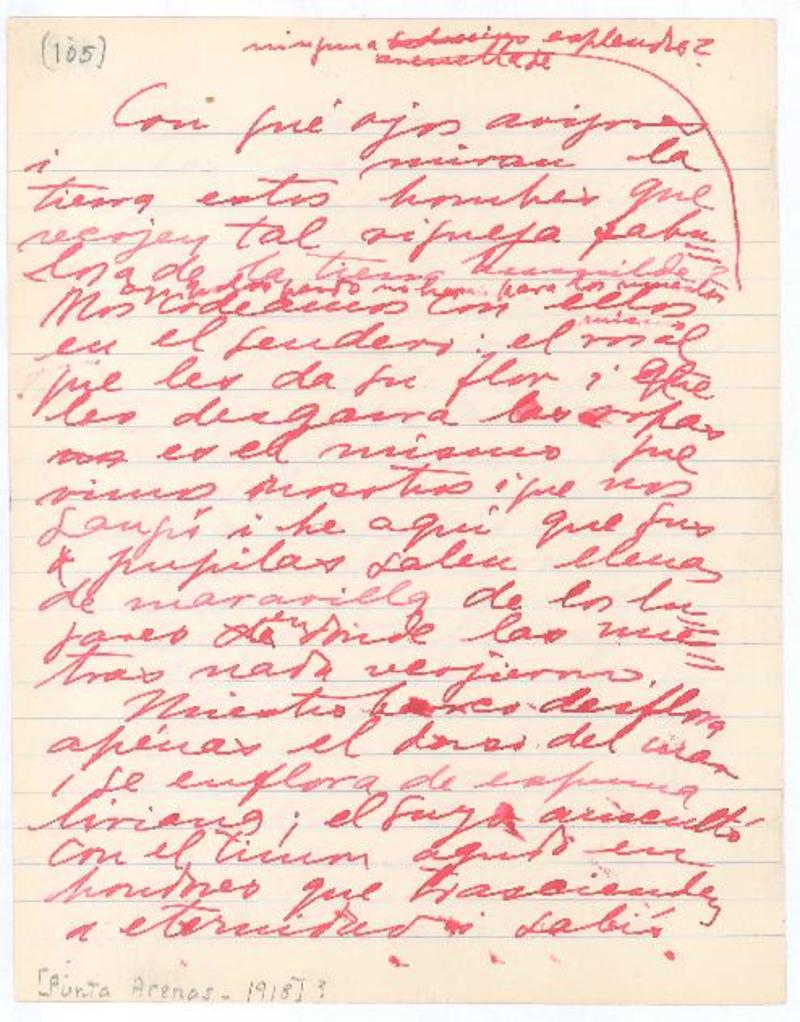 (105)
ninguna esplendor?
Con qué ojos
i miran la
tierra estos hombres que
recojen tal riqueza fabu
losa de la tierra humilde?
Nos codeamos con ellos para los
en el sendero: el rosal
que les da su flor i que
les desgarra las ropas
es el mismo que
vimos nosotros i que nos
sangró i he aquí que sus
pupilas salen llenas
de maravilla de los lu
gares en donde las nues
tras nada recojieron.
Nuestro barco desflora
apénas el dorso del mar
i se enflora de espuma
liviana; el suyo
con el timon agudo en
honduras que trascienden
a eternidad i
[Punta Arenas - 1918]?